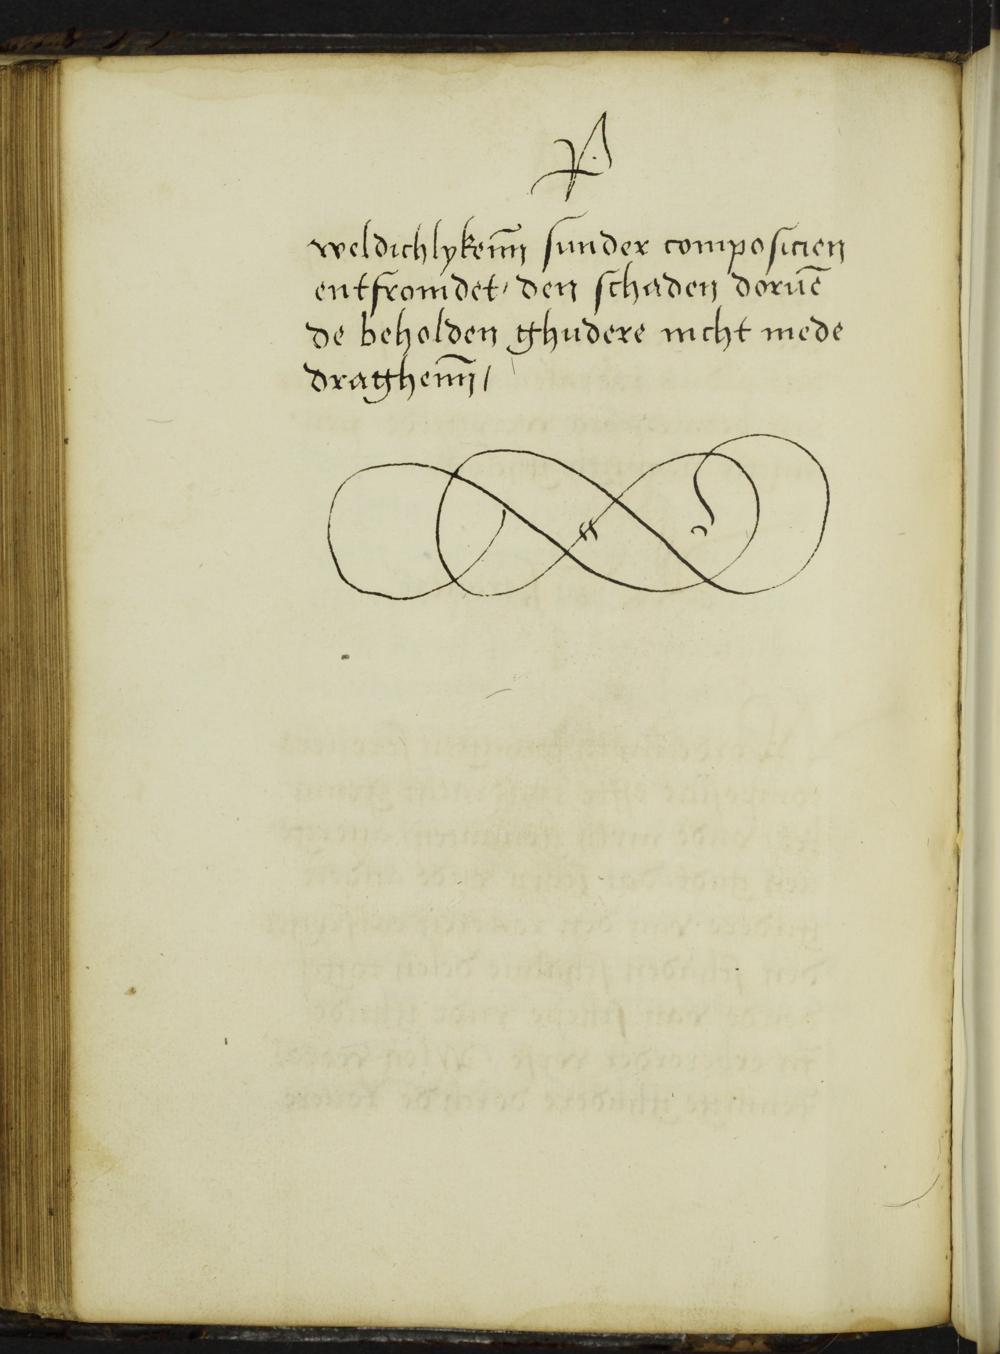 weldichlykenn̄ sunder composicien
entfromdet, den schaden doruē
de beholden ghudere nicht mede
draghenn̄ /